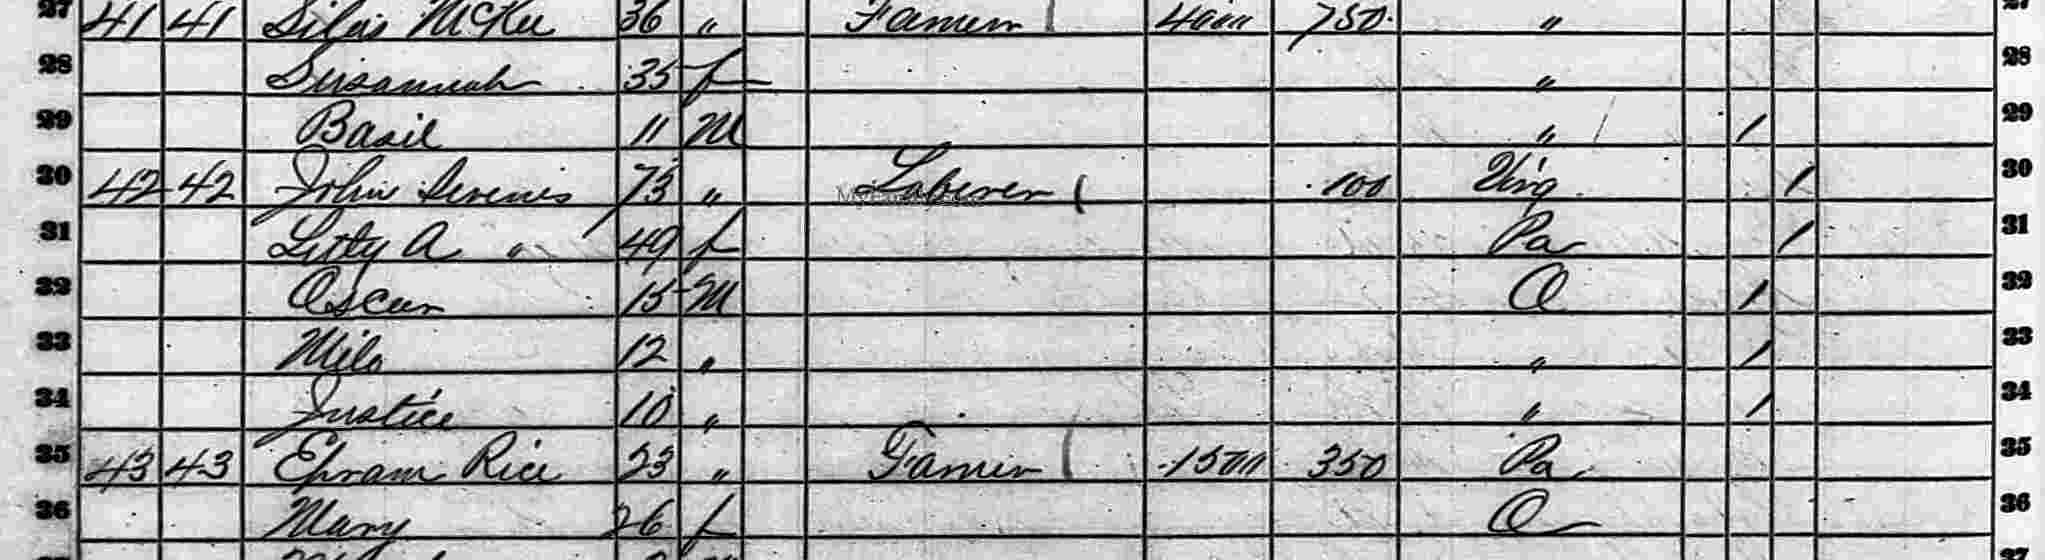 27 41 41 Silas McKee 36 " Farmer 4000 750 " 27
28 Susannah 35 f " 28
29 Basil 11 M " / 29
30 42 42 John 73 " Laborer 100 Virg / 30
31 Letty A " 49 f Pa / 31
32 Oscar 15 M O / 32
33 Milo 12 " " / 33
34 Justice 10 " " / 34
35 43 43 Ephram Rice 23 " Farmer 1500 350 Pa 35
36 Mary 26 f O 36
37